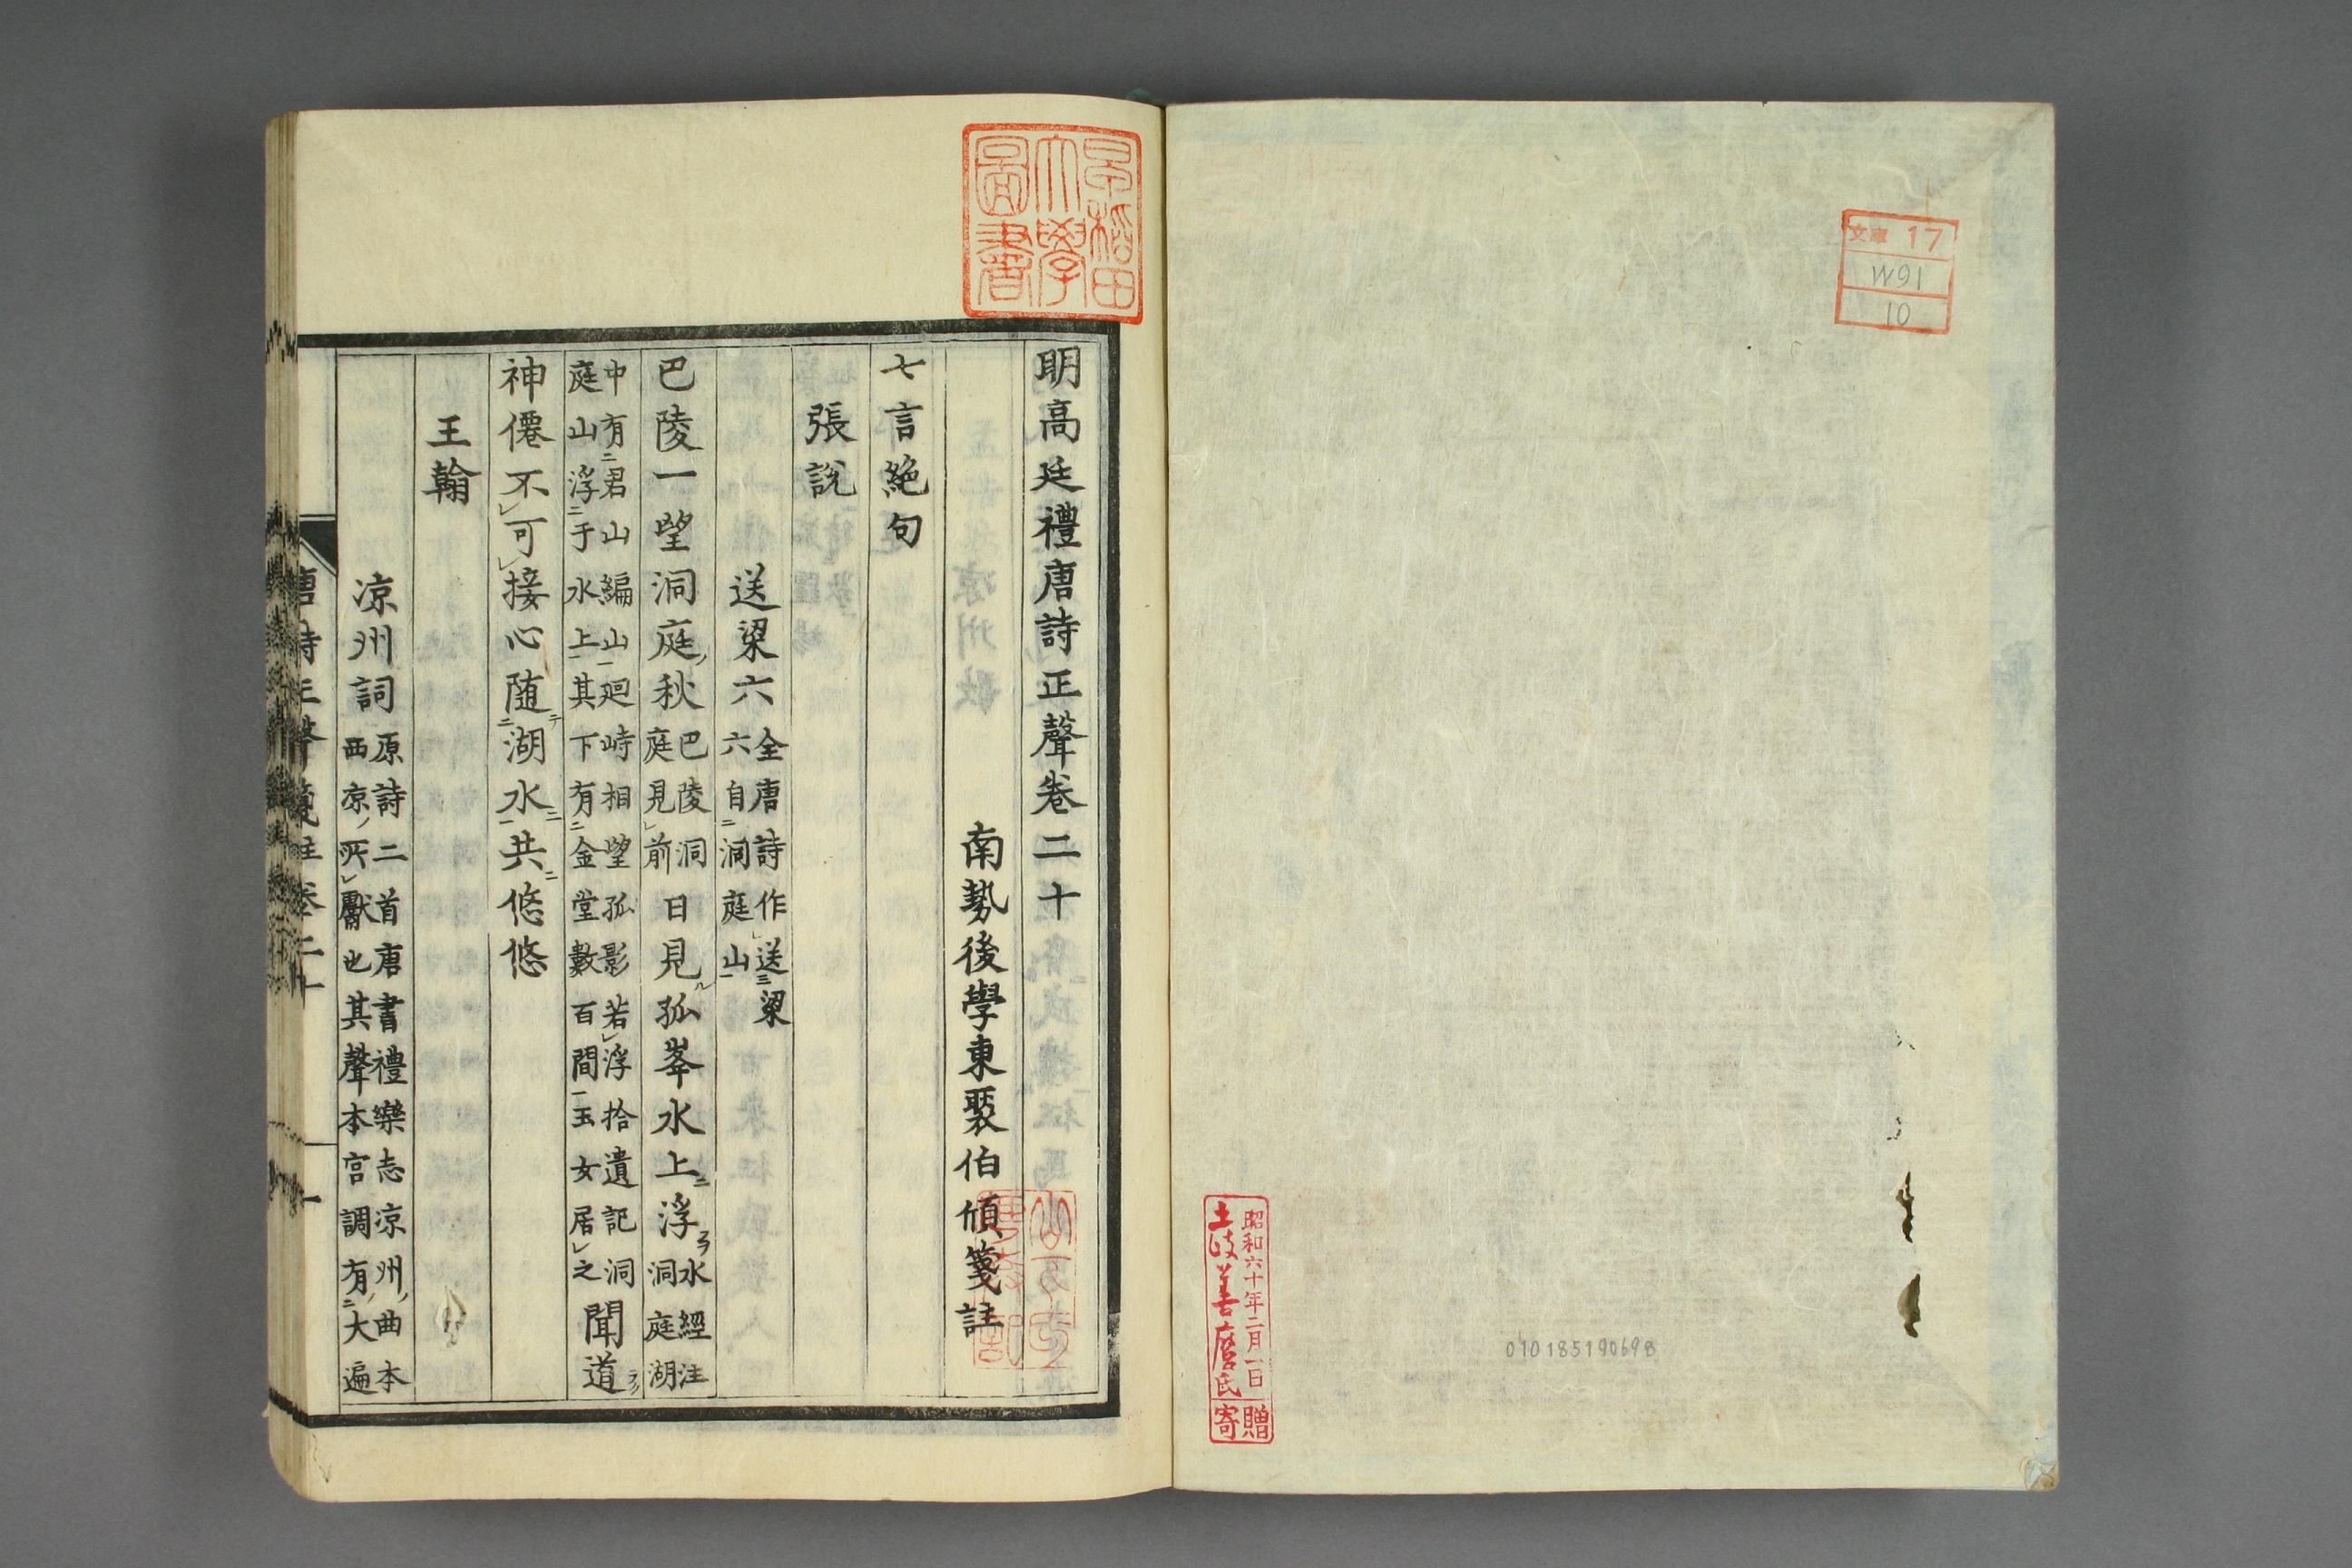 文庫 17
W91
10
昭和六十年二月一日
土岐善麿氏
寄贈
010185190698
早稲田
大學
圖書
明高廷禮唐詩正聲卷二十
南勢後學東褧伯頎箋註
七言絕句
張說
送梁六全唐詩作送梁
六自洞庭山
巴陵一望洞庭秋巴陵洞
庭見前
日見孤峯水上浮水經注
洞庭湖
中有君山編山迴峙相望孤影若浮拾遺記洞
庭山浮于水上其下有金堂數百間玉女居之
聞道
神僊不可接心随湖水共悠悠
王翰
凉州詞原詩二首唐書禮樂志凉州曲本
西凉所獻也其聲本宮調有大遍
唐詩正聲箋註卷二十
一